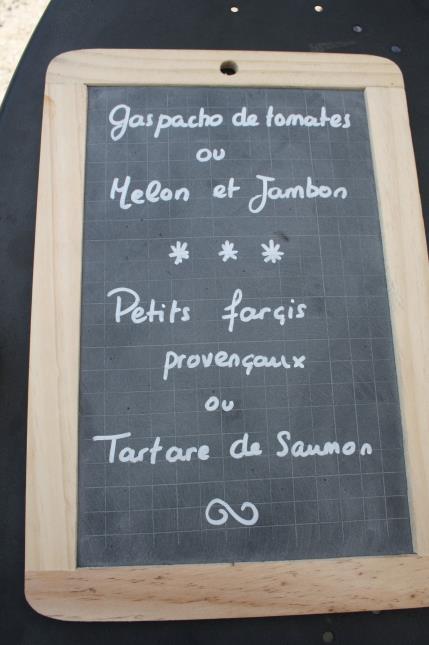 Gaspacho de tomates
ou
Melon et Jambon
* * *
Petits farçis
provençaux
ou
Tartare de Saumon